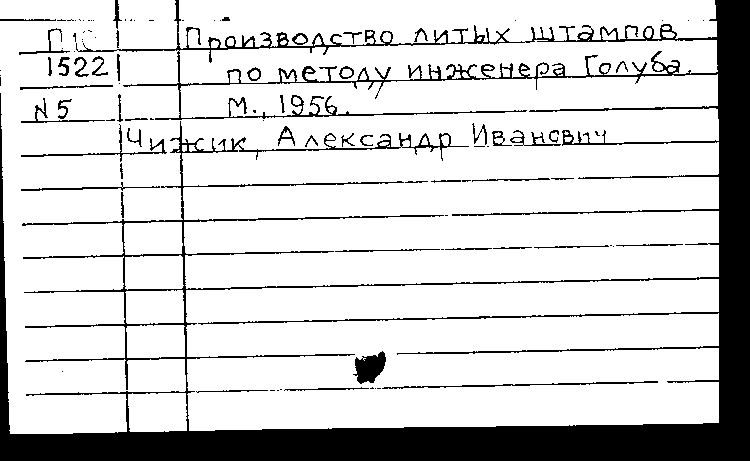 П1С Производство литых штампов
1522 по методу инженера Голуба.
N5 М., 1956.
Чижик, Александр Иванович